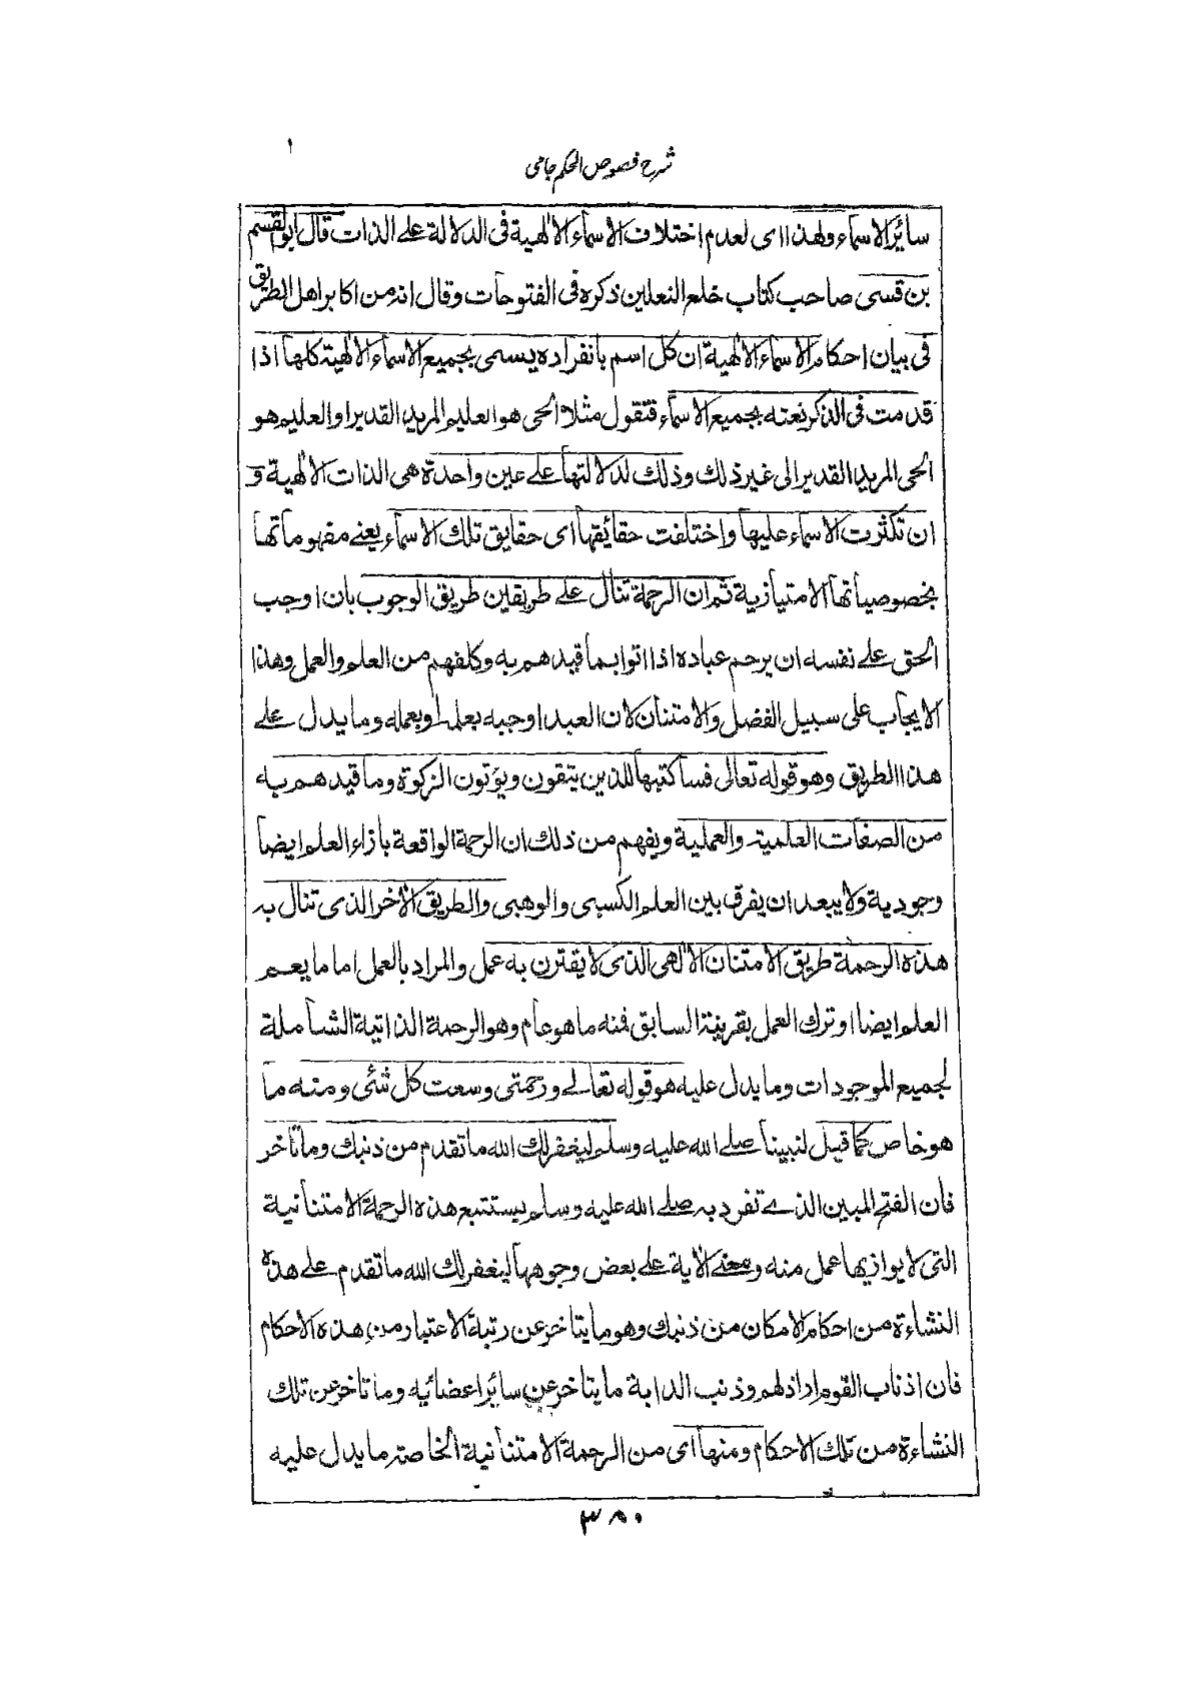 ١
شرح فصوص الحكم جامى
سائر الاسماء ولهذا اى لعدم اختلاف الاسماء الالٰهية فى الدلالة على الذات قال ابو القسم
بن قسى صاحب كتاب خلع النعلين ذكره فى الفتوحات وقال انه من اكابر اهل الطريق
فى بيان احكام الاسماء الالٰهية ان كل اسم بانفراده يسمى بجميع الاسماء الالٰهية كلها اذا
قدمت فى الذكر نعته بجميع الاسماء فتقول مثلا الحى هو العليم المريد القدير او العليم هو
الحى المريد القدير الى غير ذلك وذلك لدلالتها على عين واحدة هى الذات الالٰهية و
ان تكثرت الاسماء عليها واختلفت حقائقها اى حقايق تلك الاسماء يعنى مفهوماتها
بخصوصياتها الامتيازية ثم ان الرحمة تنال على طريقين طريق الوجوب بان اوجب
الحق على نفسه ان يرحم عباده اذا اتوا بما قيدهم به وكلفهم من العلم والعمل وهذا
الايجاب على سبيل الفضل والامتنان لا ان العبد اوجبه بعلمه او بعمله وما يدل على
هذا الطريق وهو قوله تعالى فسأكتبها للذين يتقون ويؤتون الزكوة وما قيدهم به
من الصفات العلمية والعملية ويفهم من ذلك ان الرحمة الواقعة بازاء العلم ايضا
وجودية ولا يبعد ان يفرق بين العلم الكسبى والوهبى والطريق الآخر الذى تنال به
هذه الرحمة طريق الامتنان الالٰهى الذى لا يقترن به عمل والمراد بالعمل اما ما يعم
العلم ايضا او ترك العمل بقرينة السابق فمنه ما هو عام وهو الرحمة الذاتية الشاملة
لجميع الموجودات وما يدل عليه هو قوله تعالى ورحمتى وسعت كل شئى ومنه ما
هو خاص كما قيل لنبينا صلى الله عليه وسلم ليغفر لك الله ما تقدم من ذنبك وما تأخر
فان الفتح المبين الذى تفرد به صلى الله عليه وسلم يستتبع هذه الرحمة الامتنانية
التى لا يوازيها عمل منه ومعنى الآية على بعض وجوهها ليغفر لك الله ما تقدم على هذه
النشاءة من احكام الامكان من ذنبك وهو ما يتاخر عن رتبة الاعتبار من هذه الاحكام
فان اذناب القوم اراذلهم وذنب الدابة ما يتاخر عن سائر اعضائه وما تاخر عن تلك
النشاءة من تلك الاحكام ومنها اى من الرحمة الامتنانية الخاصة ما يدل عليه
٣٨٠